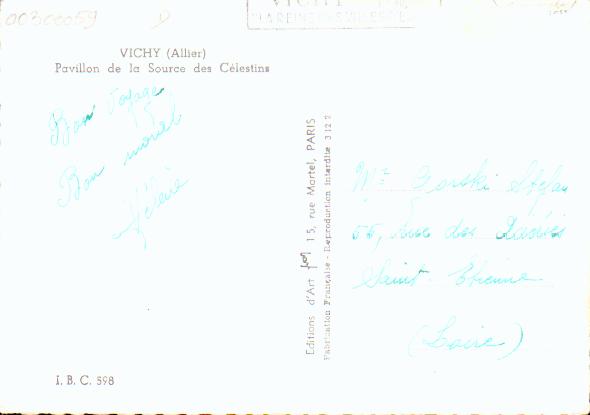 00300059
VICHY
LA REINE DES VILLES D'EAUX
VICHY (Allier)
Pavillon de la Source des Célestins
Bon voyage
Bon moral
Hélène
Editions d'Art 15, rue Martel, PARIS
Fabrication Française - Reproduction interdite 3127
Mr Gorski Stefan
55, Rue des
Saint-Etienne
(Loire)
I. B. C. 598